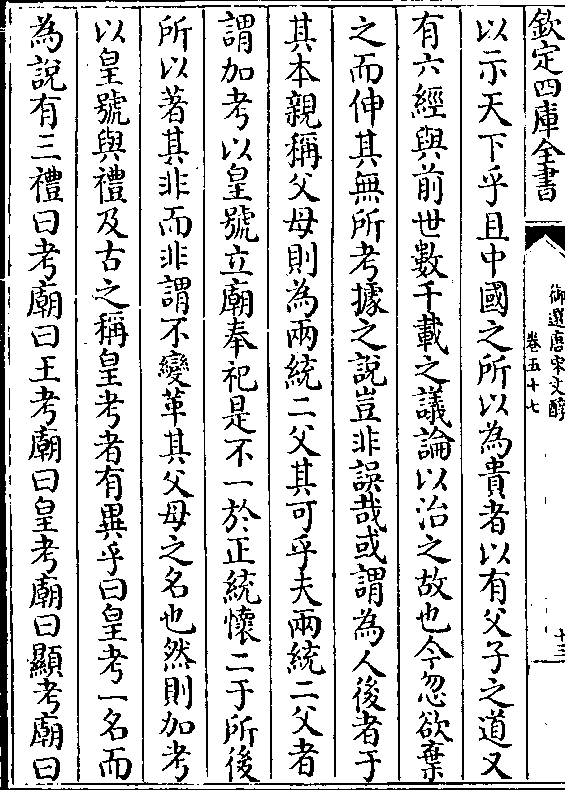 欽定四庫全書
御選唐宋文醇
卷五十七
十三
以示天下乎且中國之所以為貴者以有父子之道又
有六經與前世數千載之議論以治之故也今忽欲棄
之而伸其無所考據之說豈非誤哉或謂為人後者于
其本親稱父母則為兩統二父其可乎夫兩統二父者
謂加考以皇號立廟奉祀是不一於正統懷二于所後
所以著其非而非謂不變革其父母之名也然則加考
以皇號與禮及古之稱皇考者有異乎曰皇考一名而
為說有三禮曰考廟曰王考廟曰皇考廟曰顯考廟曰